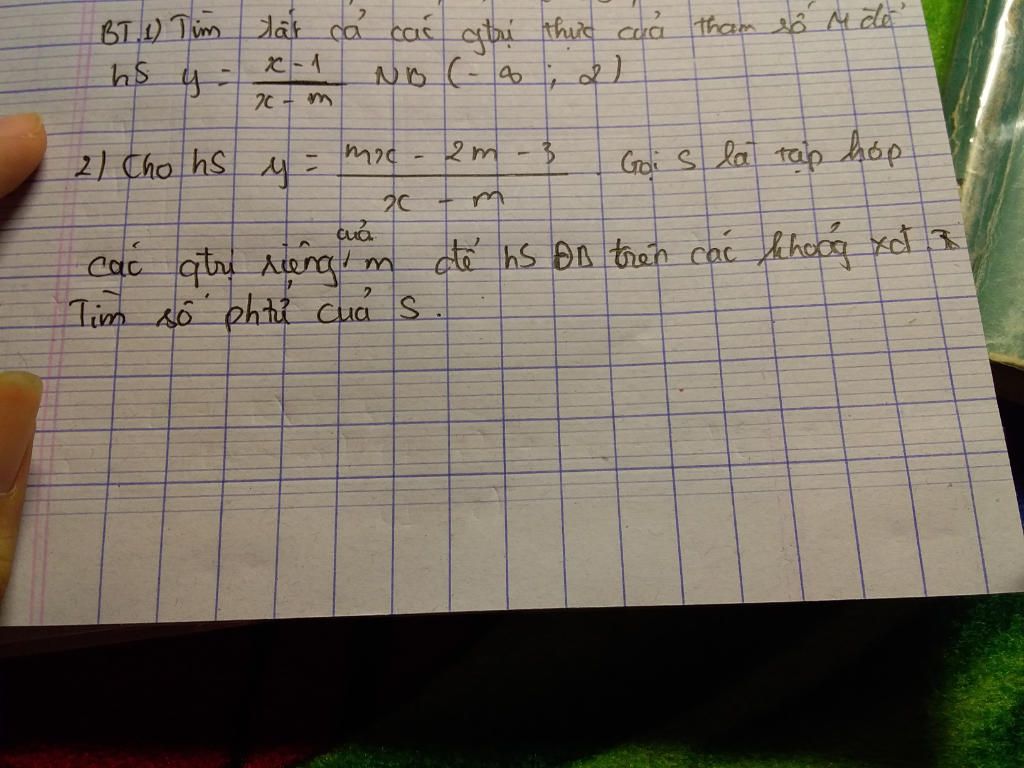 BT 1) Tìm tất cả các gtrị thực của tham số M để
hS y = \frac{x - 1}{x - m} NB (- ∞ ; 2)
2) Cho hS y = \frac{mx - 2m - 3}{x - m}. Gọi S là tập hợp
các gtrị riêng của m để hS ĐB trên các khoảg xđ.
Tìm số phtử của S.